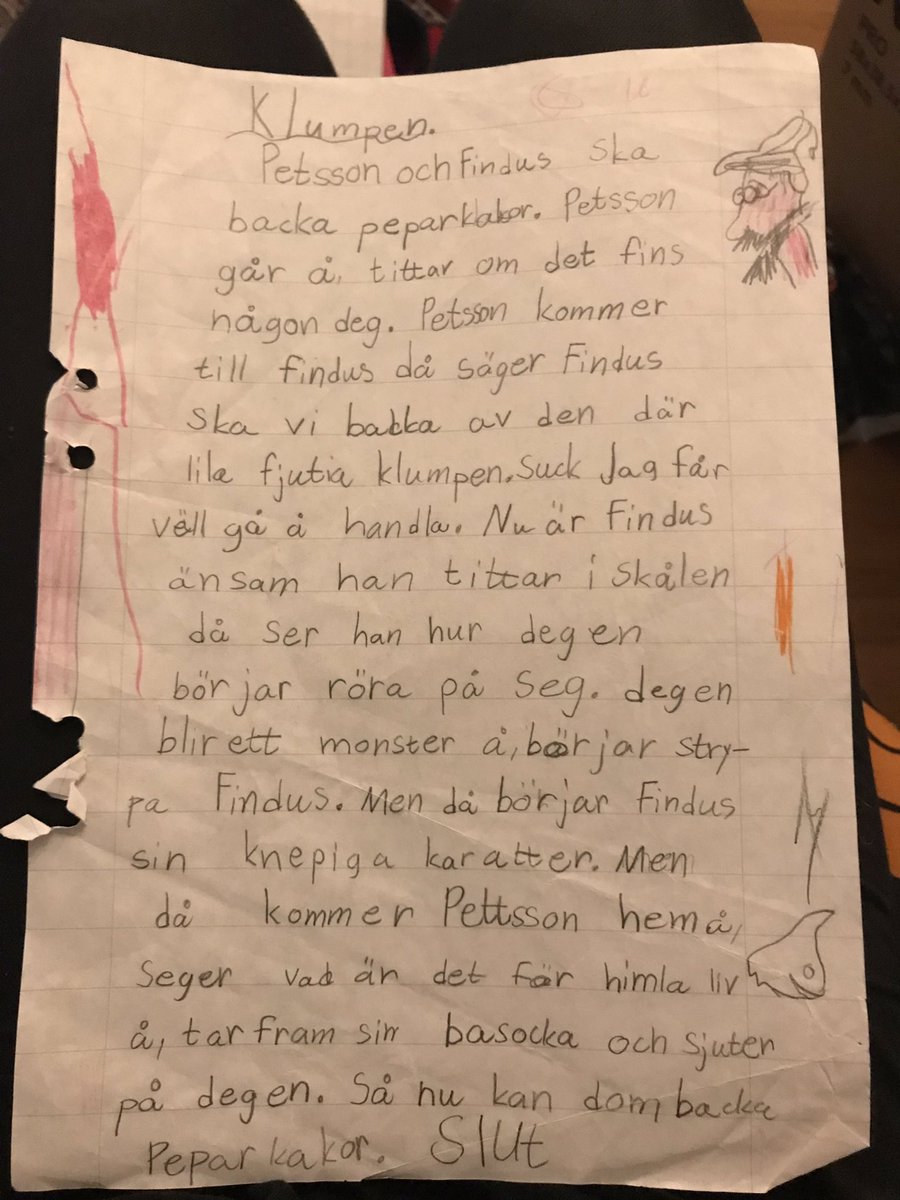 Klumpen.
Petsson och Findus ska
backa peparklakor. Petsson
går å, tittar om det fins
någon deg. Petsson kommer
till findus då säger Findus
ska vi backa av den där
lila fjutia klumpen. Suck Jag får
väll gå å handla. Nu är Findus
änsam han tittar i skålen
då ser han hur degen
börjar röra på seg. degen
blir ett monster å, börjar stry-
pa Findus. Men då börjar Findus
sin knepiga karatter. Men
då kommer Pettsson hem å,
seger vad än det för himla liv
å, tar fram sin basocka och sjuter
på degen. Så nu kan dom backa
Peparkakor. Slut